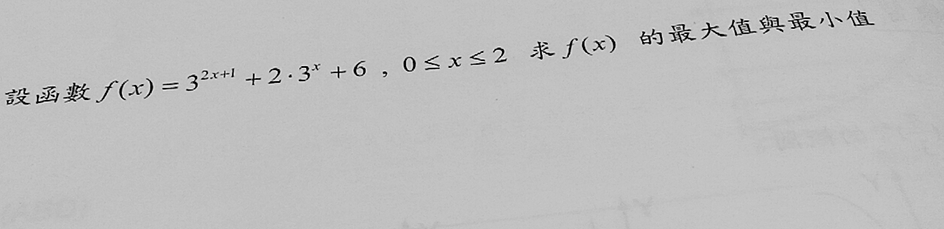 設函數 f(x) = 3^{2x+1} + 2·3^x + 6 , 0 ≤ x ≤ 2 求 f(x) 的最大值與最小值